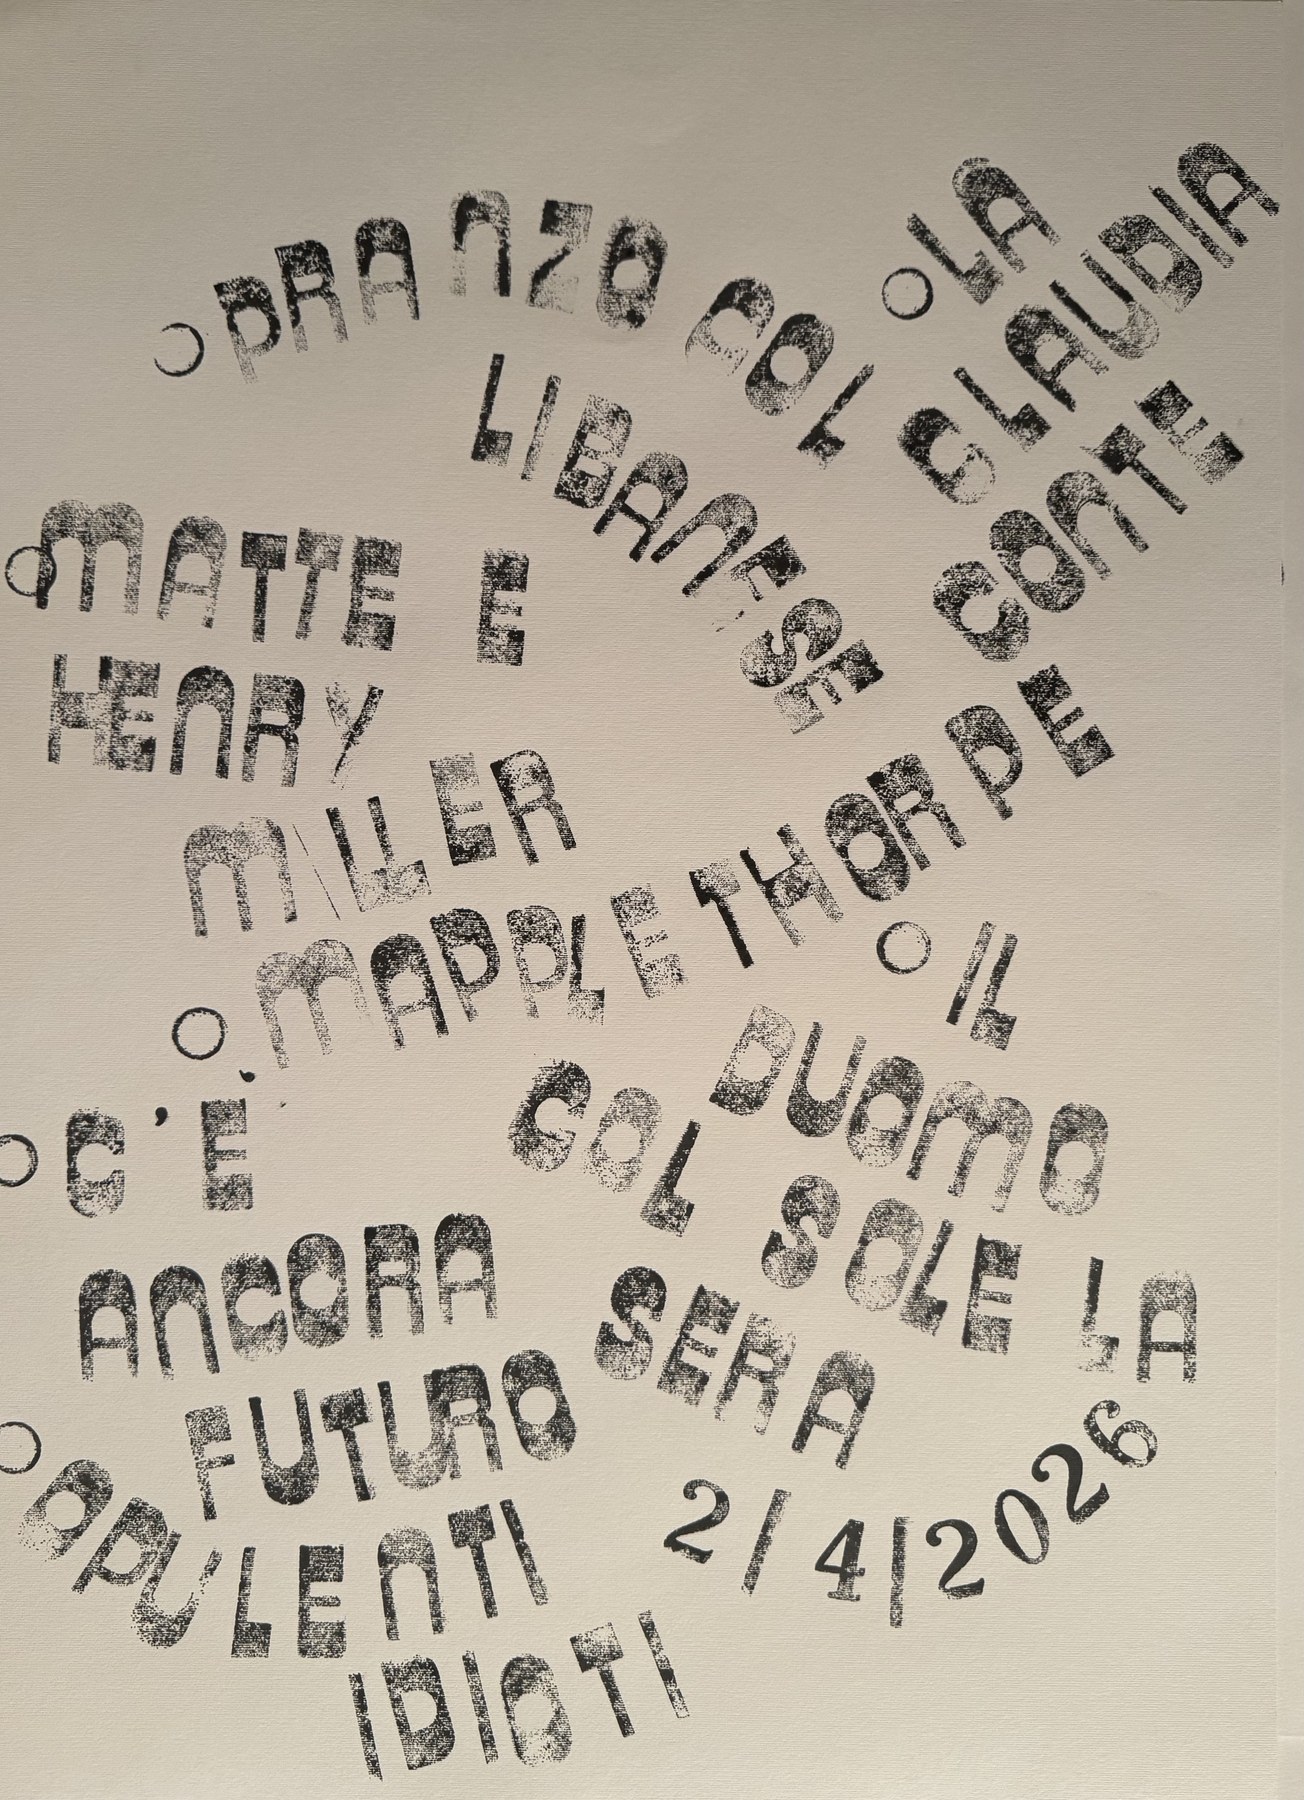 ○ PRANZO COL
LIBANESE
○ LA
CLAUDIA
CONTE
○ MATTE E
HENRY
MILLER
○ MAPPLETHORPE
○ IL
DUOMO
COL SOLE LA
SERA
○ C'E'
ANCORA
FUTURO
○ OPULENTI
IDIOTI
2/4/2026